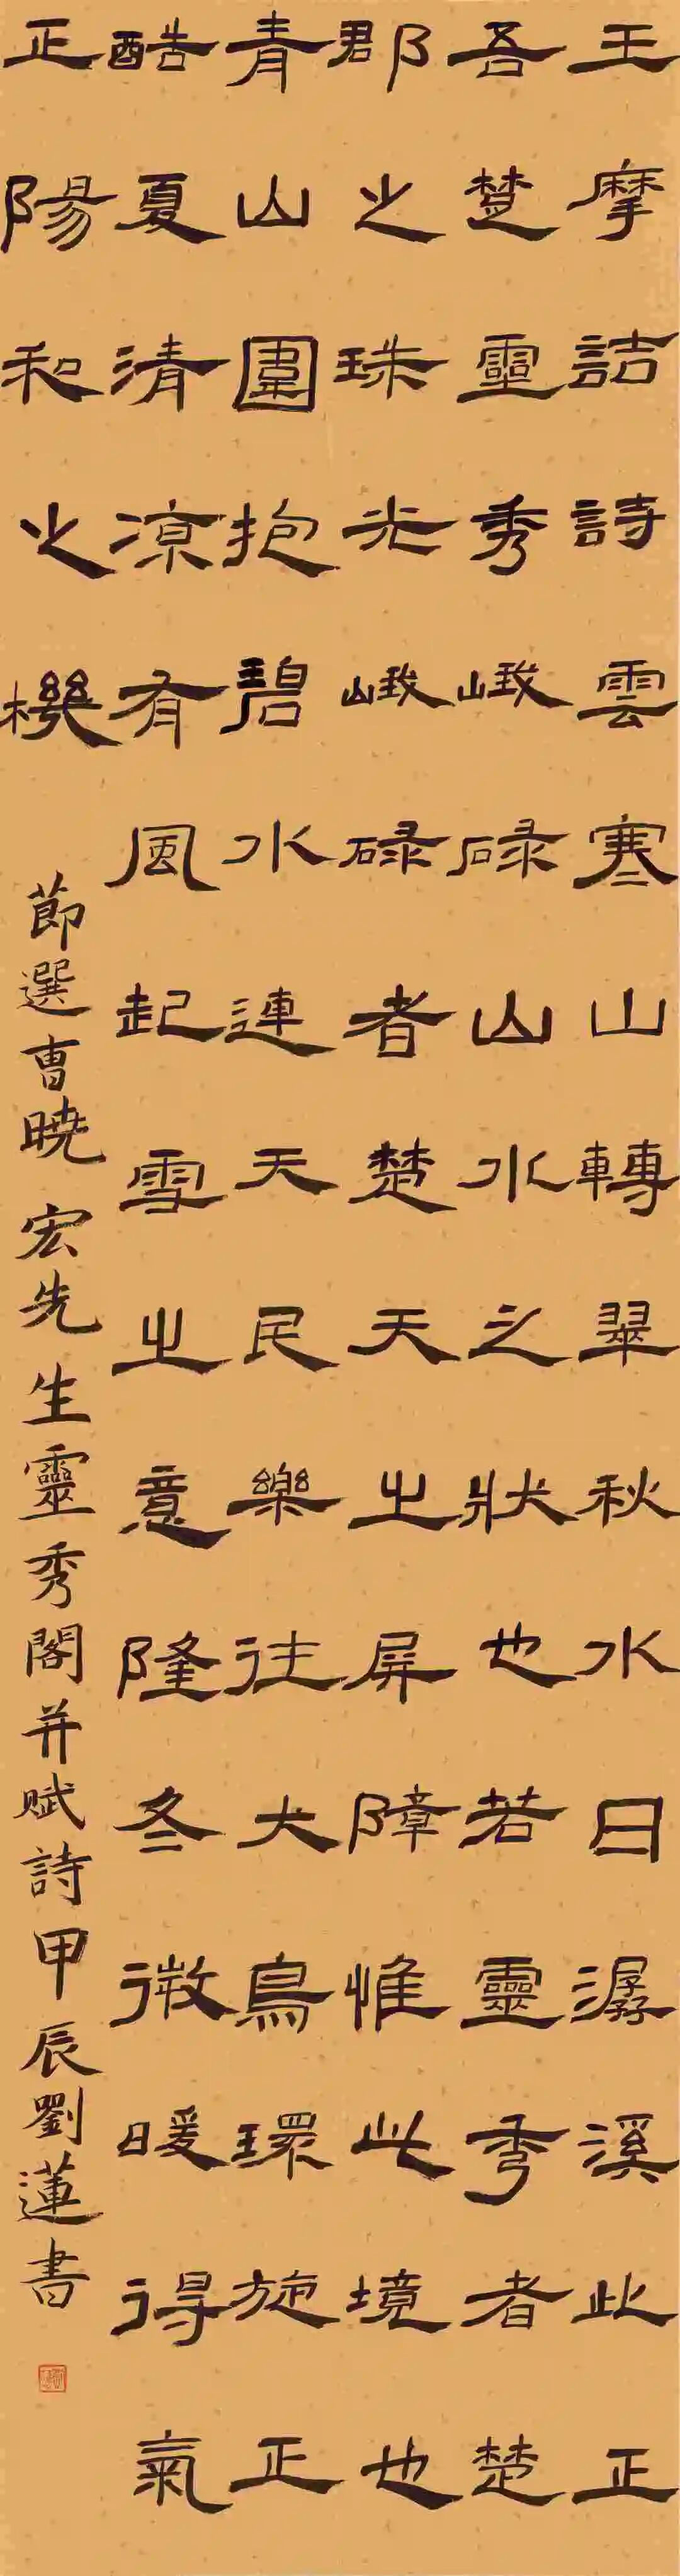 王摩詰詩雲寒山轉翠秋水日潺溪此正
吾楚靈秀峨碌山水之狀也若靈秀者楚
郡之珠光峨碌者楚天之屏障惟此境也
青山圍抱碧水連天民樂往犬鳥環旋正
酷夏清涼有風起雪之意隆冬微暖得氣
正陽和之機
節選曹曉宏先生靈秀閣并賦詩甲辰劉蓮書